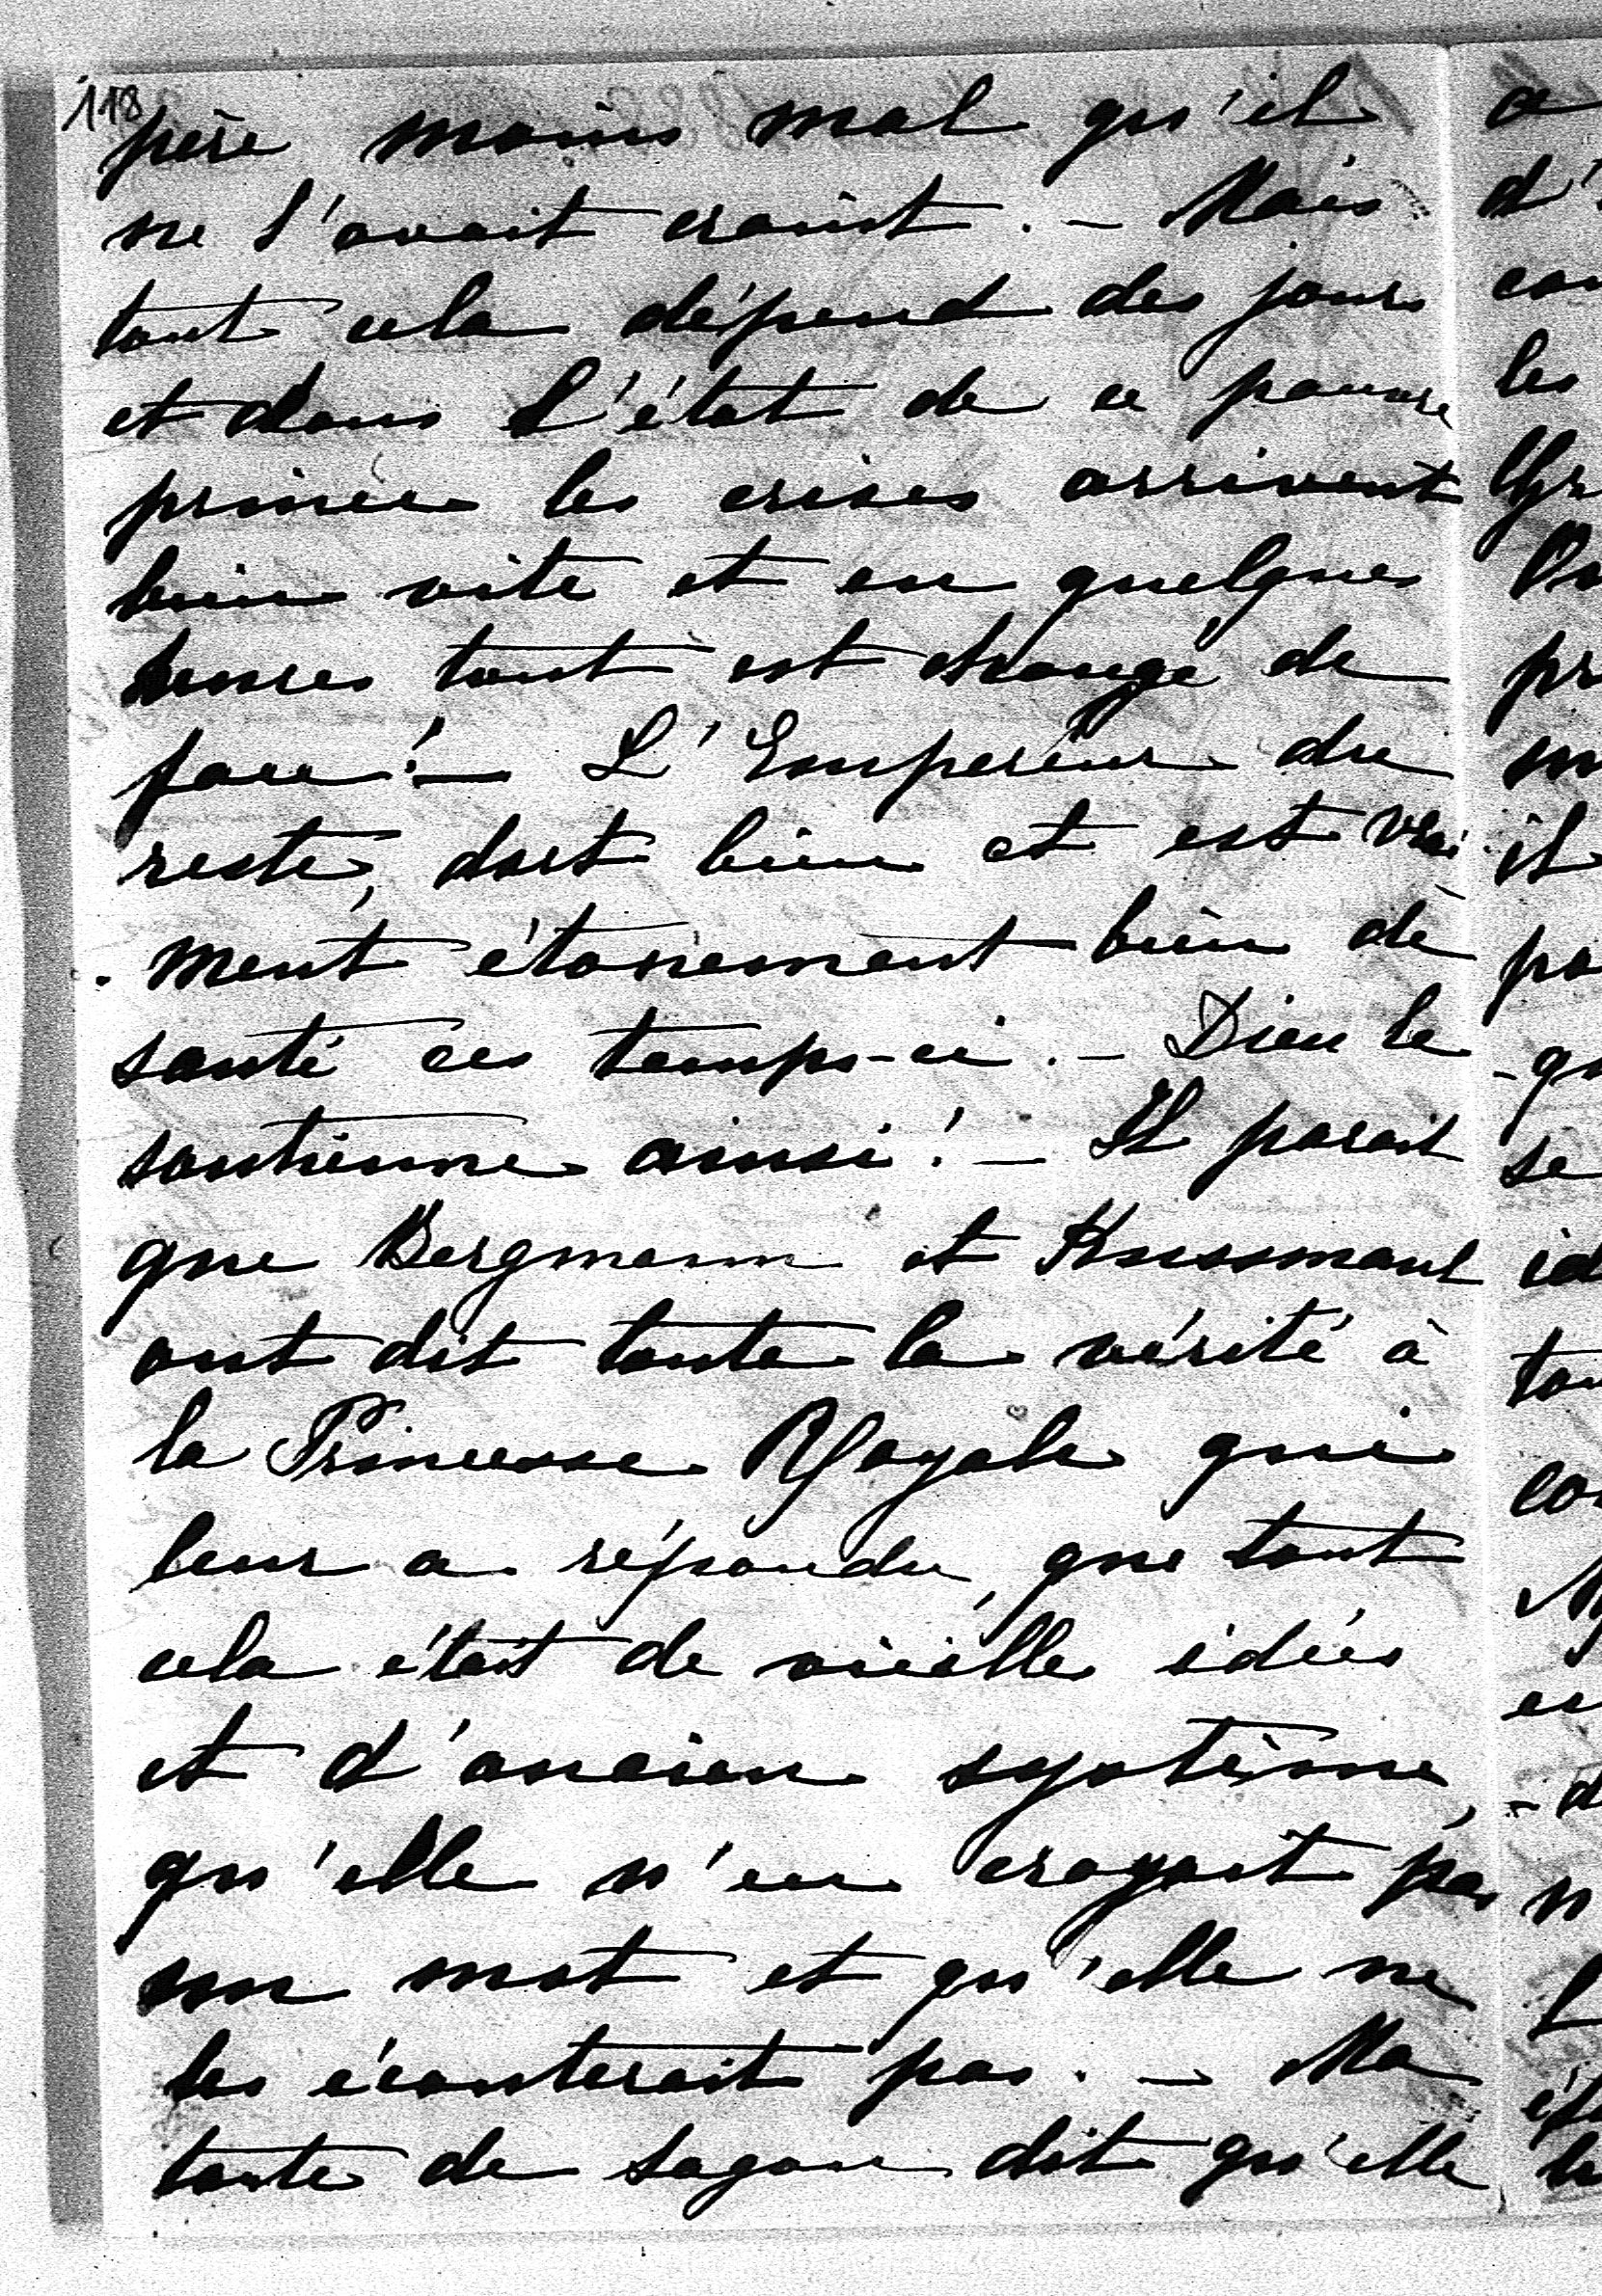 118
père moins mal qu'il
ne l'avait craint. - Mais
tout cela dépend des jours
et dans l'état de ce pauvre
prince les crises arrivent
bien vite et en quelques
heures tout est changé de
face! - L'Empereur du
reste, dort bien et est vrai
ment étonement bien de
santé ces temps-ci. - Dieu le
soutienne ainsi! - Il parait
que Bergmann et Kussmaul
ont dit toute la vérité à
la Princesse Royale qui
leur a répondu, que tout
cela était de vieille idées
et d'ancien système,
qu'elle n'en croyait pas
un mot et qu'elle ne
les écouterait pas. - Ma
tante de Sagan dit qu'elle